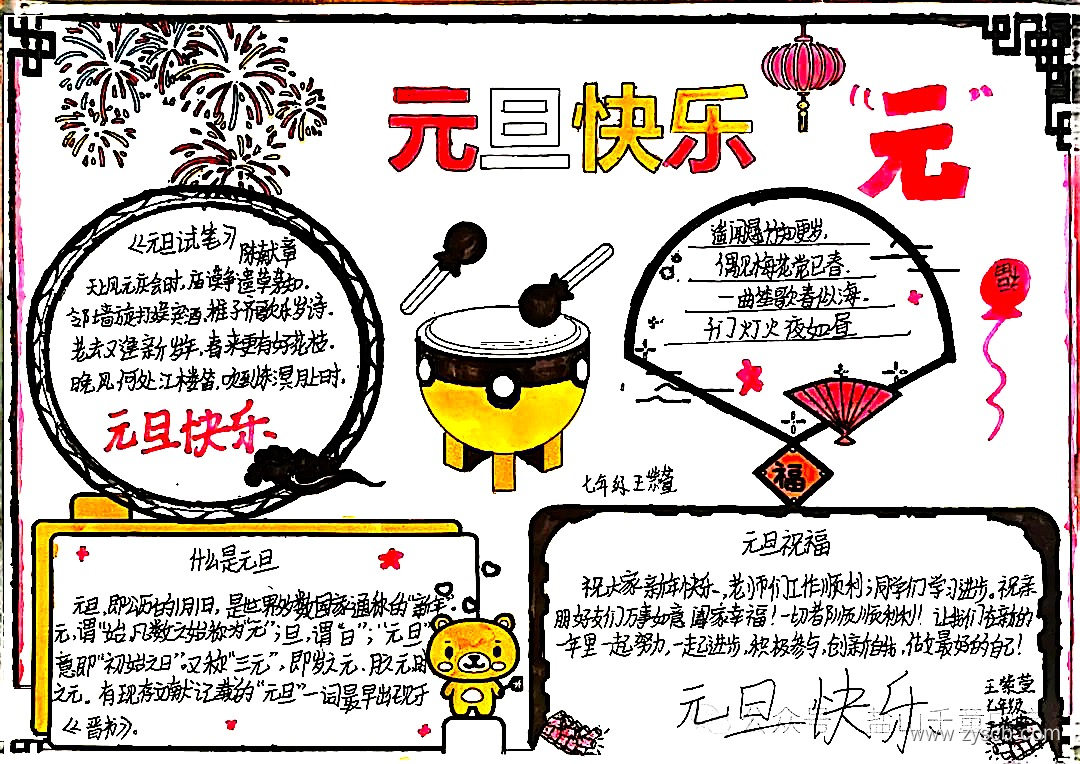 元旦快乐
"元"
《元旦试笔》
陈献章
天上风元庆会时,庙谟争遣草茅知。
邻墙旋打娱宾酒,稚子齐歌乐岁诗。
老去又逢新岁年,春来更有好花枝。
晚风何处江楼笛,吹到东溟月上时。
元旦快乐
遥闻爆竹知更岁,
偶见梅花觉已春。
一曲笙歌春似海,
千门灯火夜如昼
福
福
七年级王紫萱
什么是元旦
元旦,即公历的1月1日,是世界多数国家通称的"新年".
元,谓"始,凡数之始称为"元";旦,谓"日";"元旦"
意即"初始之日"又称"三元",即岁之元、月之元、时
之元。有现存文献记载的"元旦"一词最早出现于
《晋书》。
元旦祝福
祝大家新年快乐,老师们工作顺利;同学们学习进步。祝亲
朋好友们万事如意,阖家幸福!一切都顺顺利利!让我们在新的
一年里一起努力,一起进步,积极参与,创新自我,做最好的自己!
元旦快乐
王紫萱
七年级
www.zyscb.com